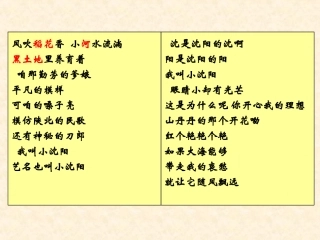 风吹稻花香 小河水流淌
黑土地里养育着
咱那勤劳的爹娘
平凡的模样
可咱的嗓子亮
模仿陕北的民歌
还有神秘的刀郎
我叫小沈阳
艺名也叫小沈阳
沈是沈阳的沈啊
阳是沈阳的阳
我叫小沈阳
眼睛小却有光芒
这是为什么呢 你开心我的理想
山丹丹的那个开花呦
红个艳艳个艳
如果大海能够
带走我的哀愁
就让它随风飘远